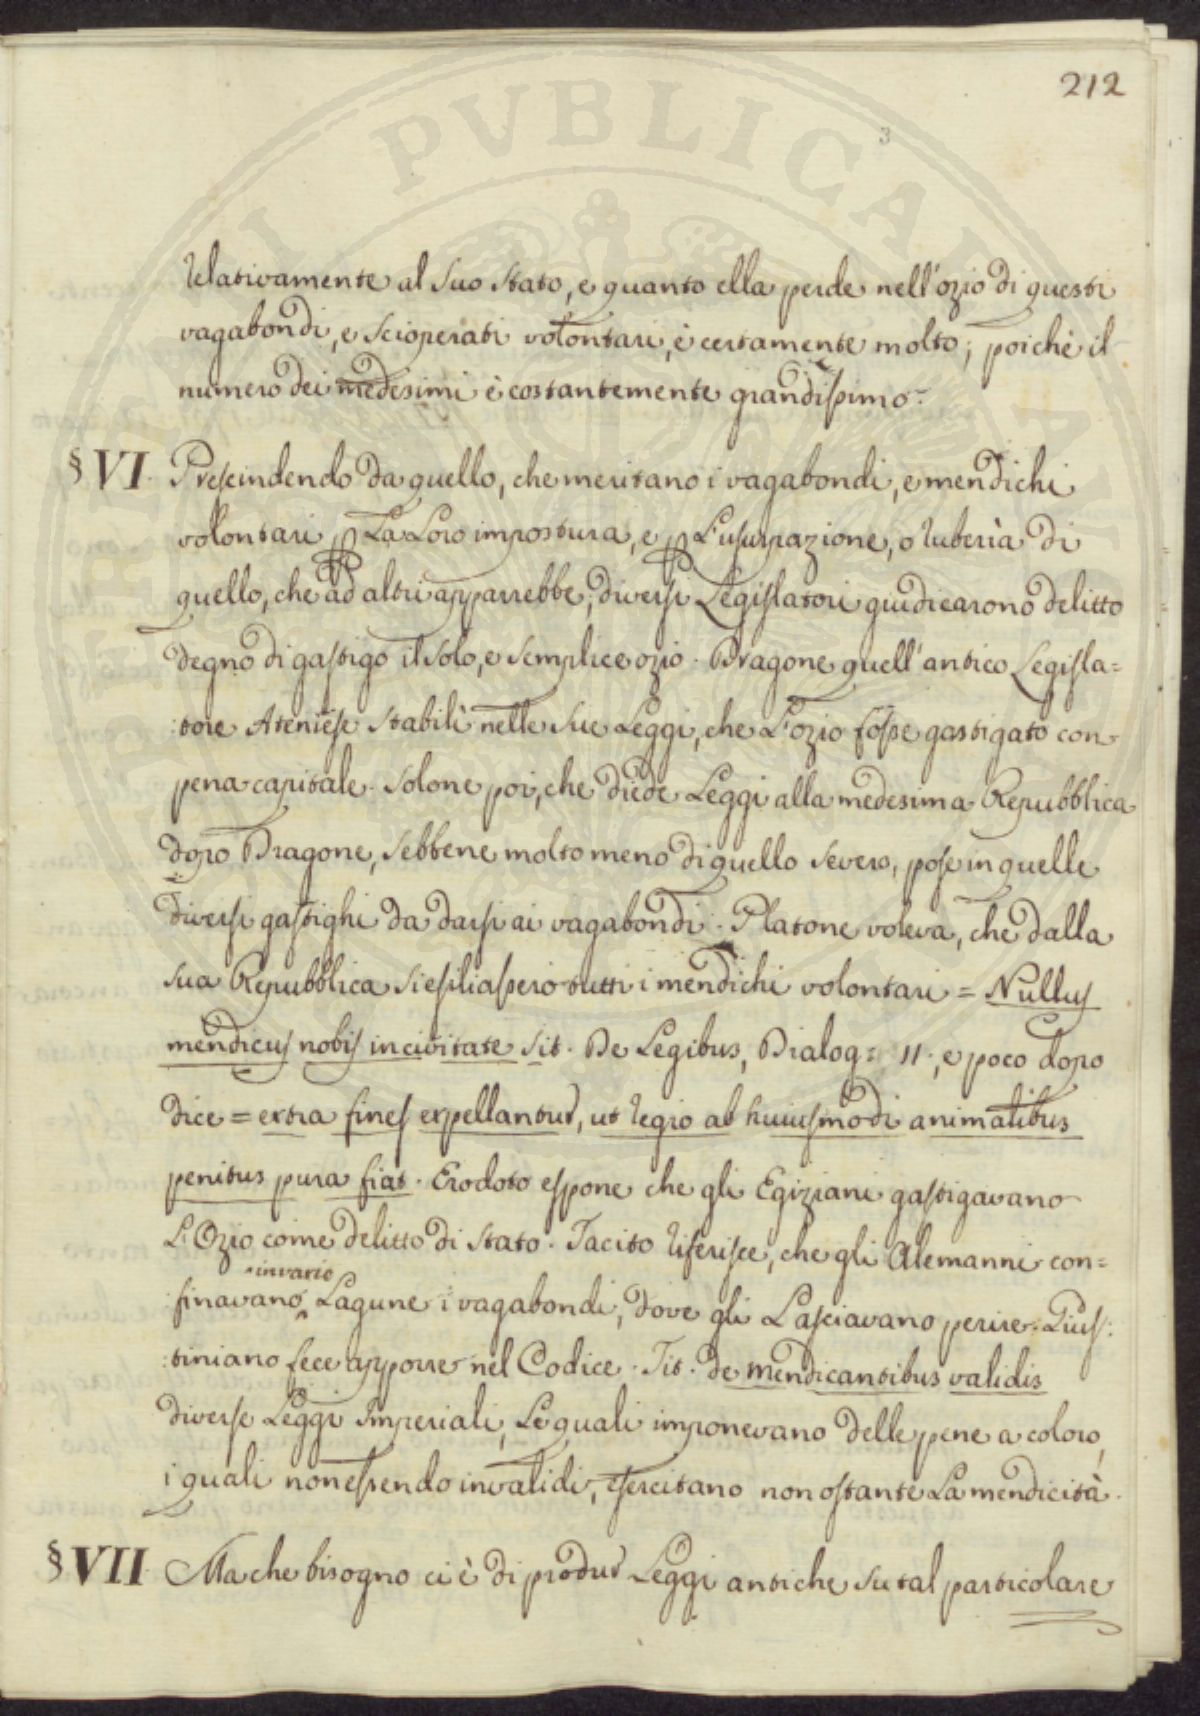 212
3
relativamente al suo stato, e quanto ella perde nell'ozio di questi
vagabondi, e scioperati volontari, è certamente molto; poichè il
numero dei medesimi è costantemente grandissimo.
§ VI. Prescindendo da quello, che meritano i vagabondi, e mendichi
volontari p La Loro impostura, e p L'usurpazione, o ruberìa di
quello, che ad altri apparrebbe, diversi Legislatori giudicarono delitto
degno di gastigo il solo, e semplice ozio. Dragone quell'antico Legisla=
:tore Ateniese stabilì nelle sue Leggi, che L'ozio fosse gastigato con
pena capitale. Solone poi, che diede Leggi alla medesima Repubblica
dopo Dragone, sebbene molto meno di quello severo, pose in quelle
diversi gastighi da darsi ai vagabondi. Platone voleva, che dalla
sua Repubblica si esiliassero tutti i mendichi volontari = Nullus
mendicus nobis in civitate sit. De Legibus, Dialog: 11; e poco dopo
dice = extra fines expellantur, ut regio ab huiusmodi animalibus
penitus pura fiat. Erodoto espone che gli Egiziani gastigavano
L'Ozio come delitto di stato. Tacito riferisce, che gli Alemanni con=
invarie
:finavano Lagune i vagabondi, dove gli Lasciavano perire. Gius:
:tiniano fece apporre nel Codice. Tit. de mendicantibus validis
diverse Leggi Imperiali, Le quali imponevano delle pene a coloro,
i quali non essendo invalidi, esercitano non ostante La mendicità.
§ VII. Ma che bisogno ci è di produr Leggi antiche su tal particolare